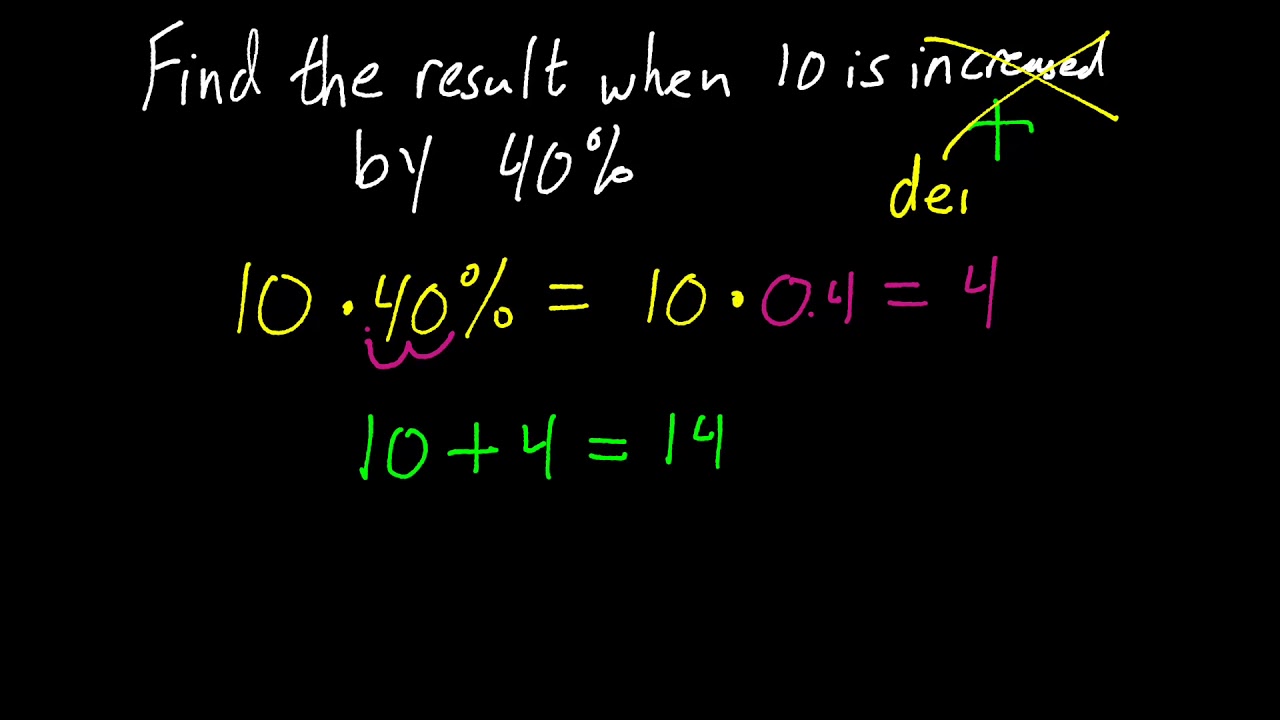 Find the result when 10 is increased
by 40%
+
de
10 · 40% = 10 · 0.4 = 4
10 + 4 = 14